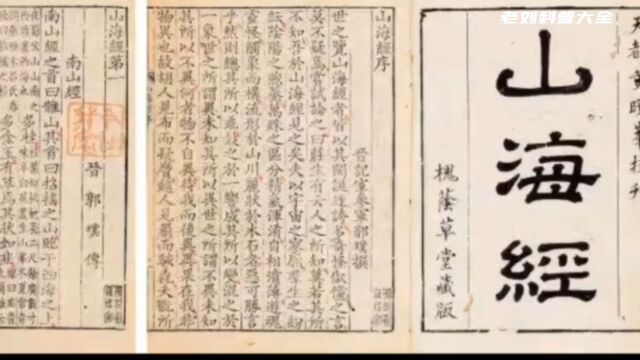 老刘科普大全
山海經
槐蔭草堂藏版
山海經序
晉記室參軍郭璞撰
世之覽山海經者皆以其閎誕迂誇多奇怪俶儻之言
莫不疑焉嘗試論之曰莊生有云人之所知莫若其所
不知吾於山海經見之矣夫以宇宙之寥廓羣生之紛
紜陰陽之煦蒸萬殊之區分精氣渾淆自相濆薄遊魂
靈怪觸象而構流形於山川麗狀於木石者惡可勝言
乎然則總其所以乖鼓之於一響成其所以變混之於
一象世之所謂異未知其所以異世之所謂不異未知
其所以不異何者物不自異待我而後異異果在我非
物異也故胡人見布而疑黂越人見罽而駭毳夫翫所
山海經第一
南山經
晉 郭璞 傳
南山經之首曰䧿山其首曰招搖之山臨于西海之上
多桂
多金玉有草焉其狀如韭